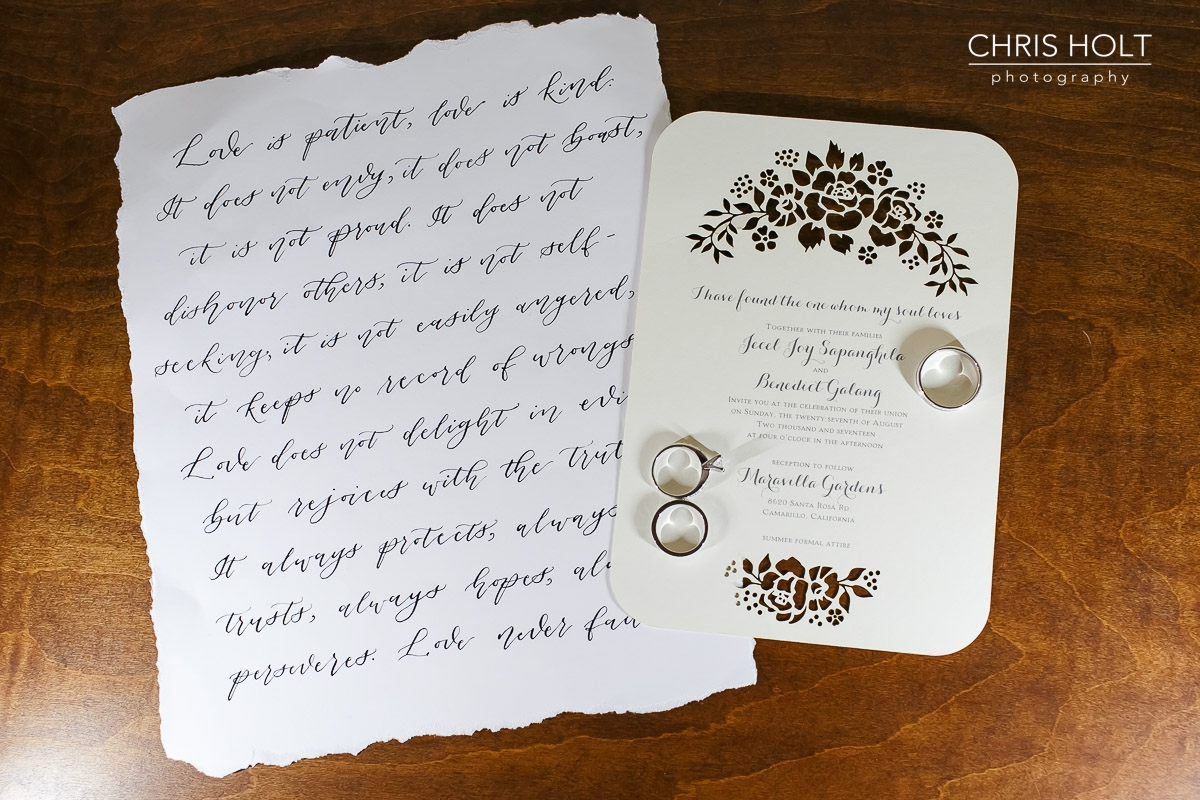 Love is patient, love is kind.
It does not envy, it does not boast,
it is not proud. It does not
dishonor others, it is not self-
seeking, it is not easily angered,
it keeps no record of wrongs
Love does not delight in evi
but rejoices with the trut
It always protects, always
trusts, always hopes, alw
perseveres. Love never fail
CHRIS HOLT
photography
I have found the one whom my soul loves
TOGETHER WITH THEIR FAMILIES
Jecel Joy Sapanghila
AND
Benedict Galang
INVITE YOU AT THE CELEBRATION OF THEIR UNION
ON SUNDAY, THE TWENTY SEVENTH OF AUGUST
TWO THOUSAND AND SEVENTEEN
AT FOUR O'CLOCK IN THE AFTERNOON
RECEPTION TO FOLLOW
Maravilla Gardens
8620 SANTA ROSA RD.
CAMARILLO, CALIFORNIA
SUMMER FORMAL ATTIRE